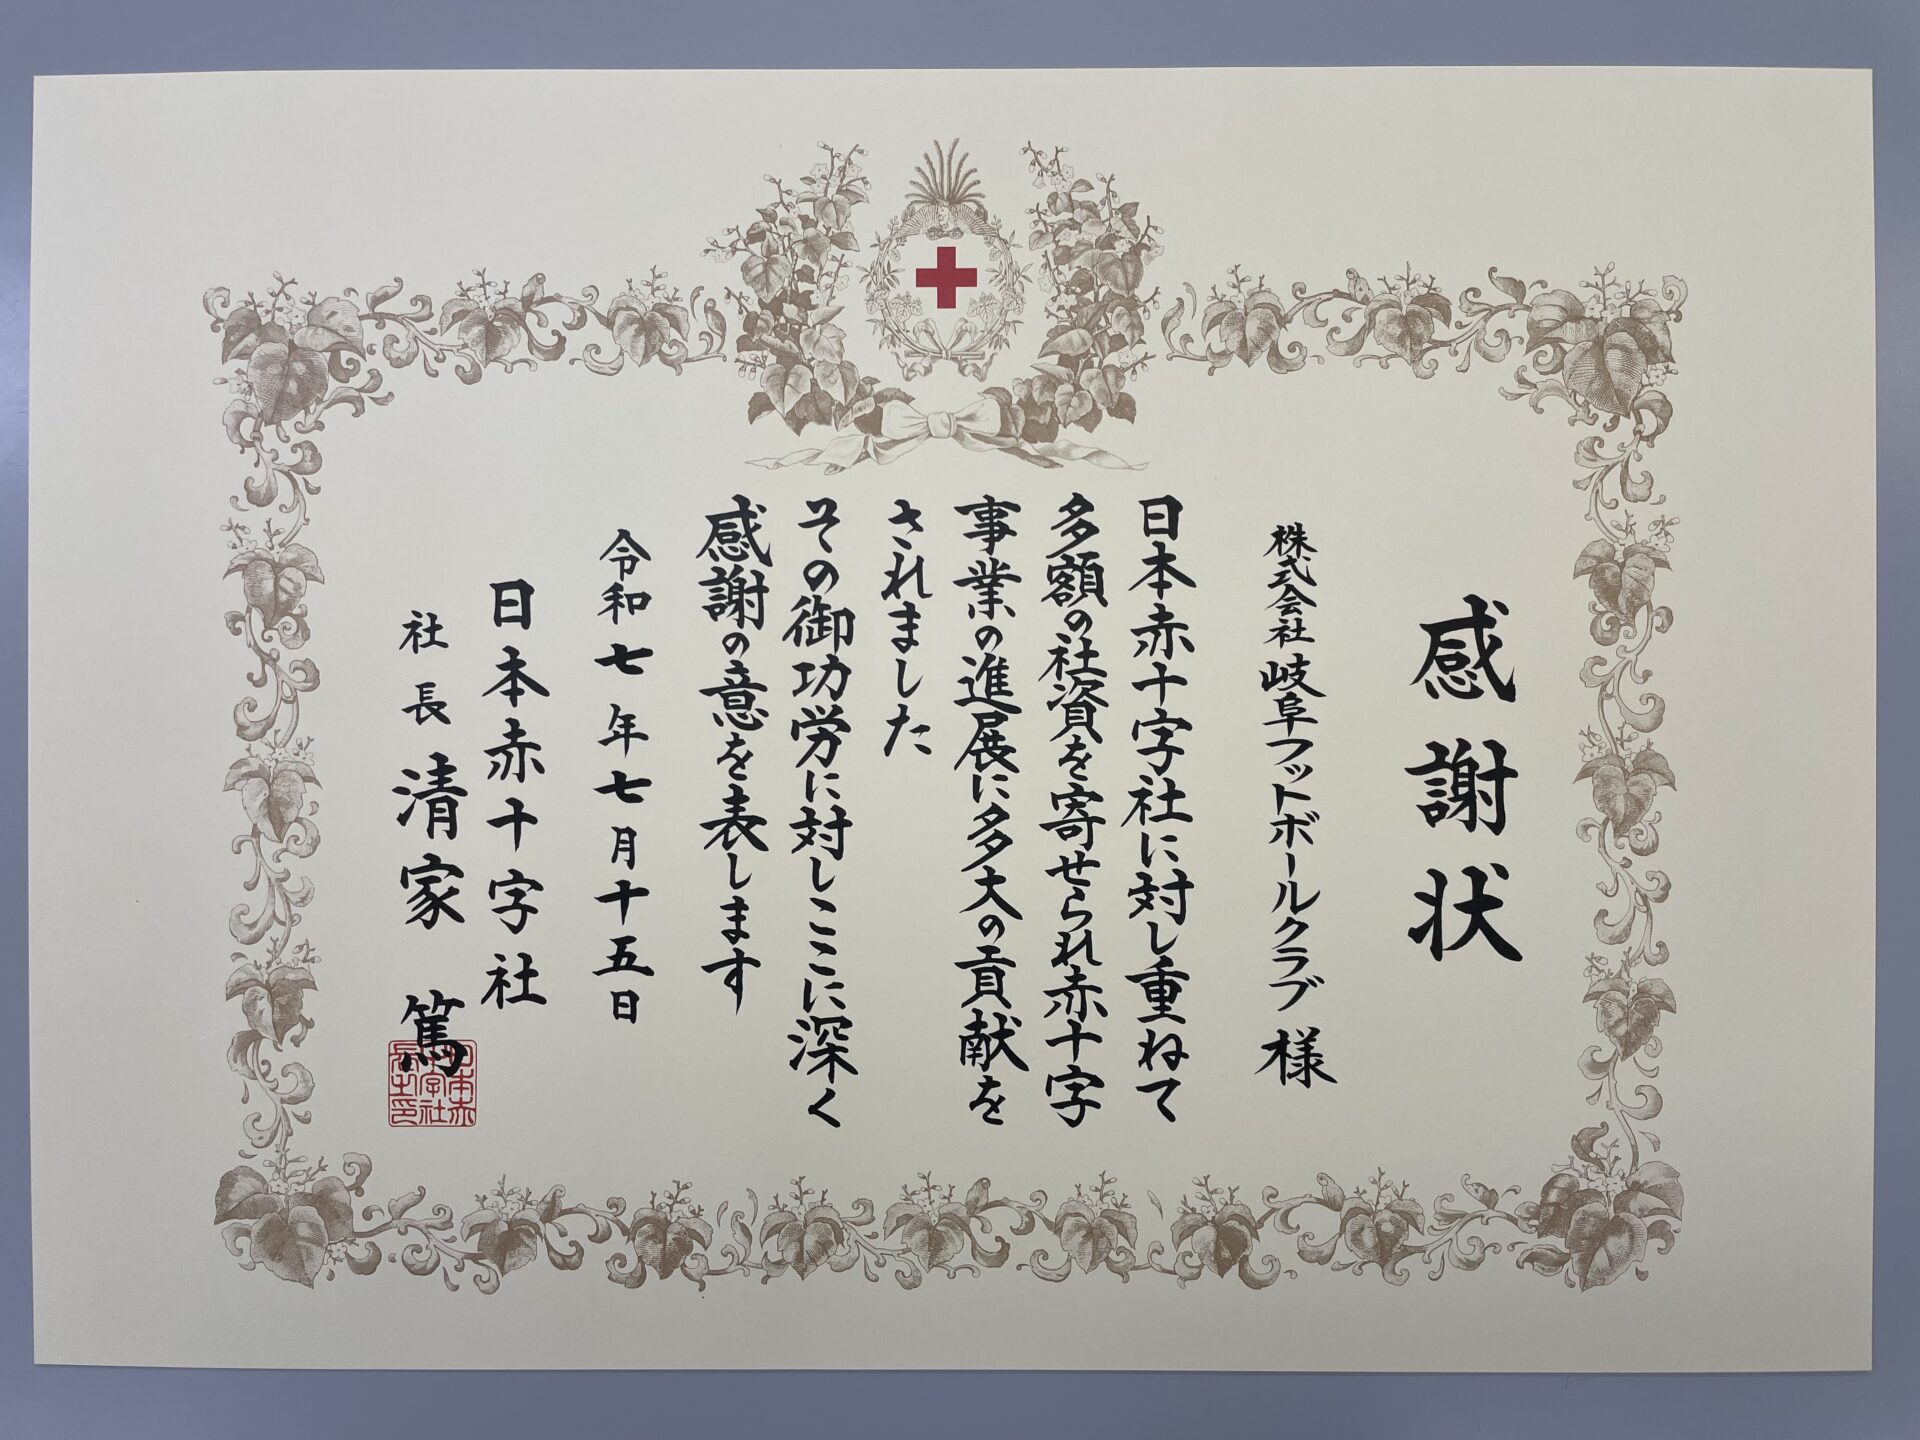 感謝状
株式会社岐阜フットボールクラブ様
日本赤十字社に対し重ねて
多額の社資を寄せられ赤十字
事業の進展に多大の貢献を
されました
その御功労に対しここに深く
感謝の意を表します
令和七年七月十五日
日本赤十字社
社長 清家 篤
日本赤十字社長之印